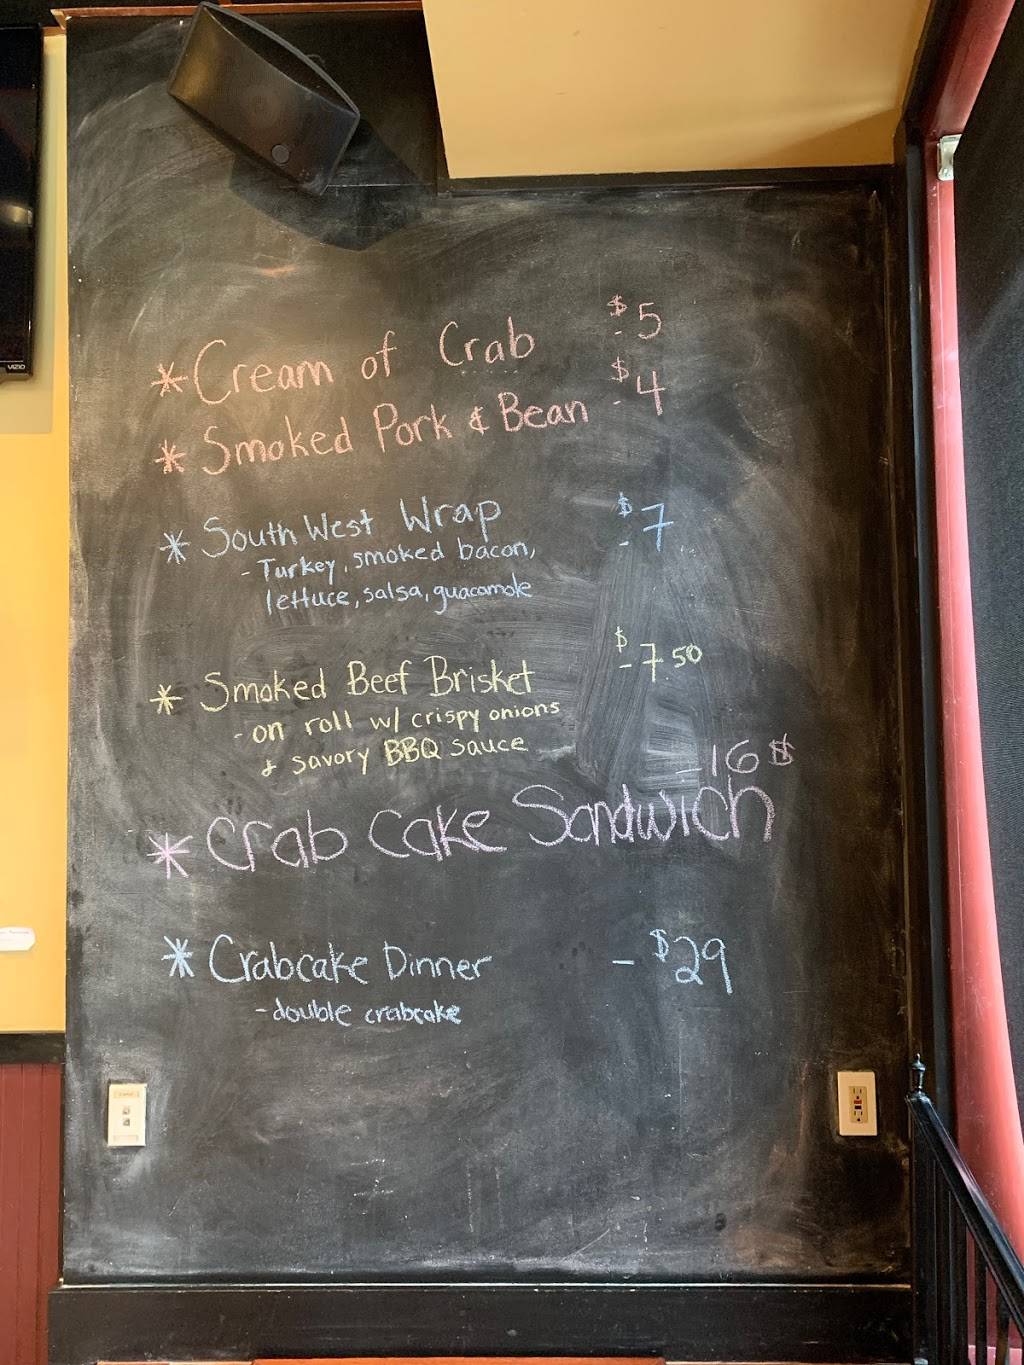 VIZIO
* Cream of Crab - $5
* Smoked Pork & Bean - $4
* South West Wrap - $7
- Turkey, smoked bacon,
lettuce, salsa, guacamole
* Smoked Beef Brisket - $7.50
- on roll w/ crispy onions
& savory BBQ sauce
- 16 $
* Crab Cake Sandwich
* Crabcake Dinner - $29
- double crabcake